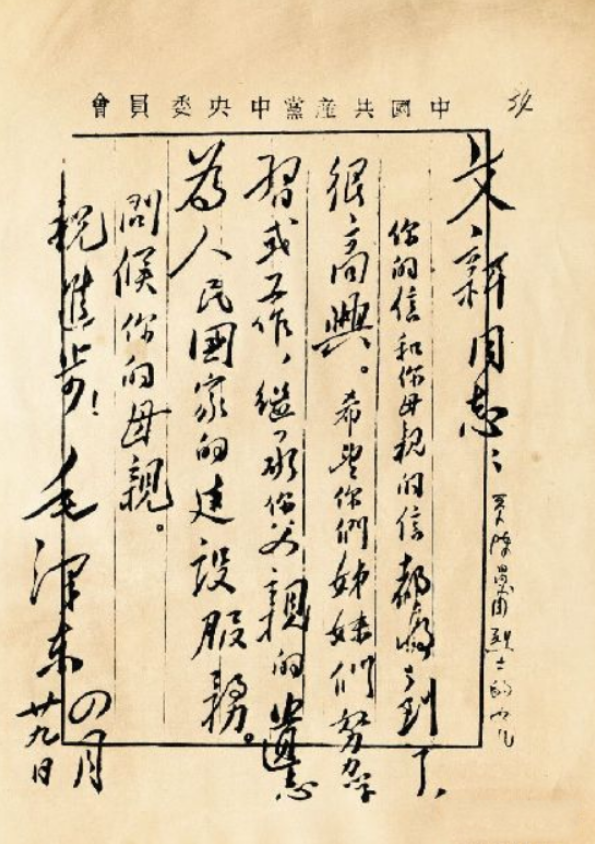 中國共産黨中央委員會
文新同志：
你的信和你母親的信都收到了，
很高興。希望你們姊妹們努力学
習或工作，繼承你父親的遺志
為人民國家的建設服務。
問候你的母親。
祝進步！
毛澤東
四月
廿九日
烈士的女儿